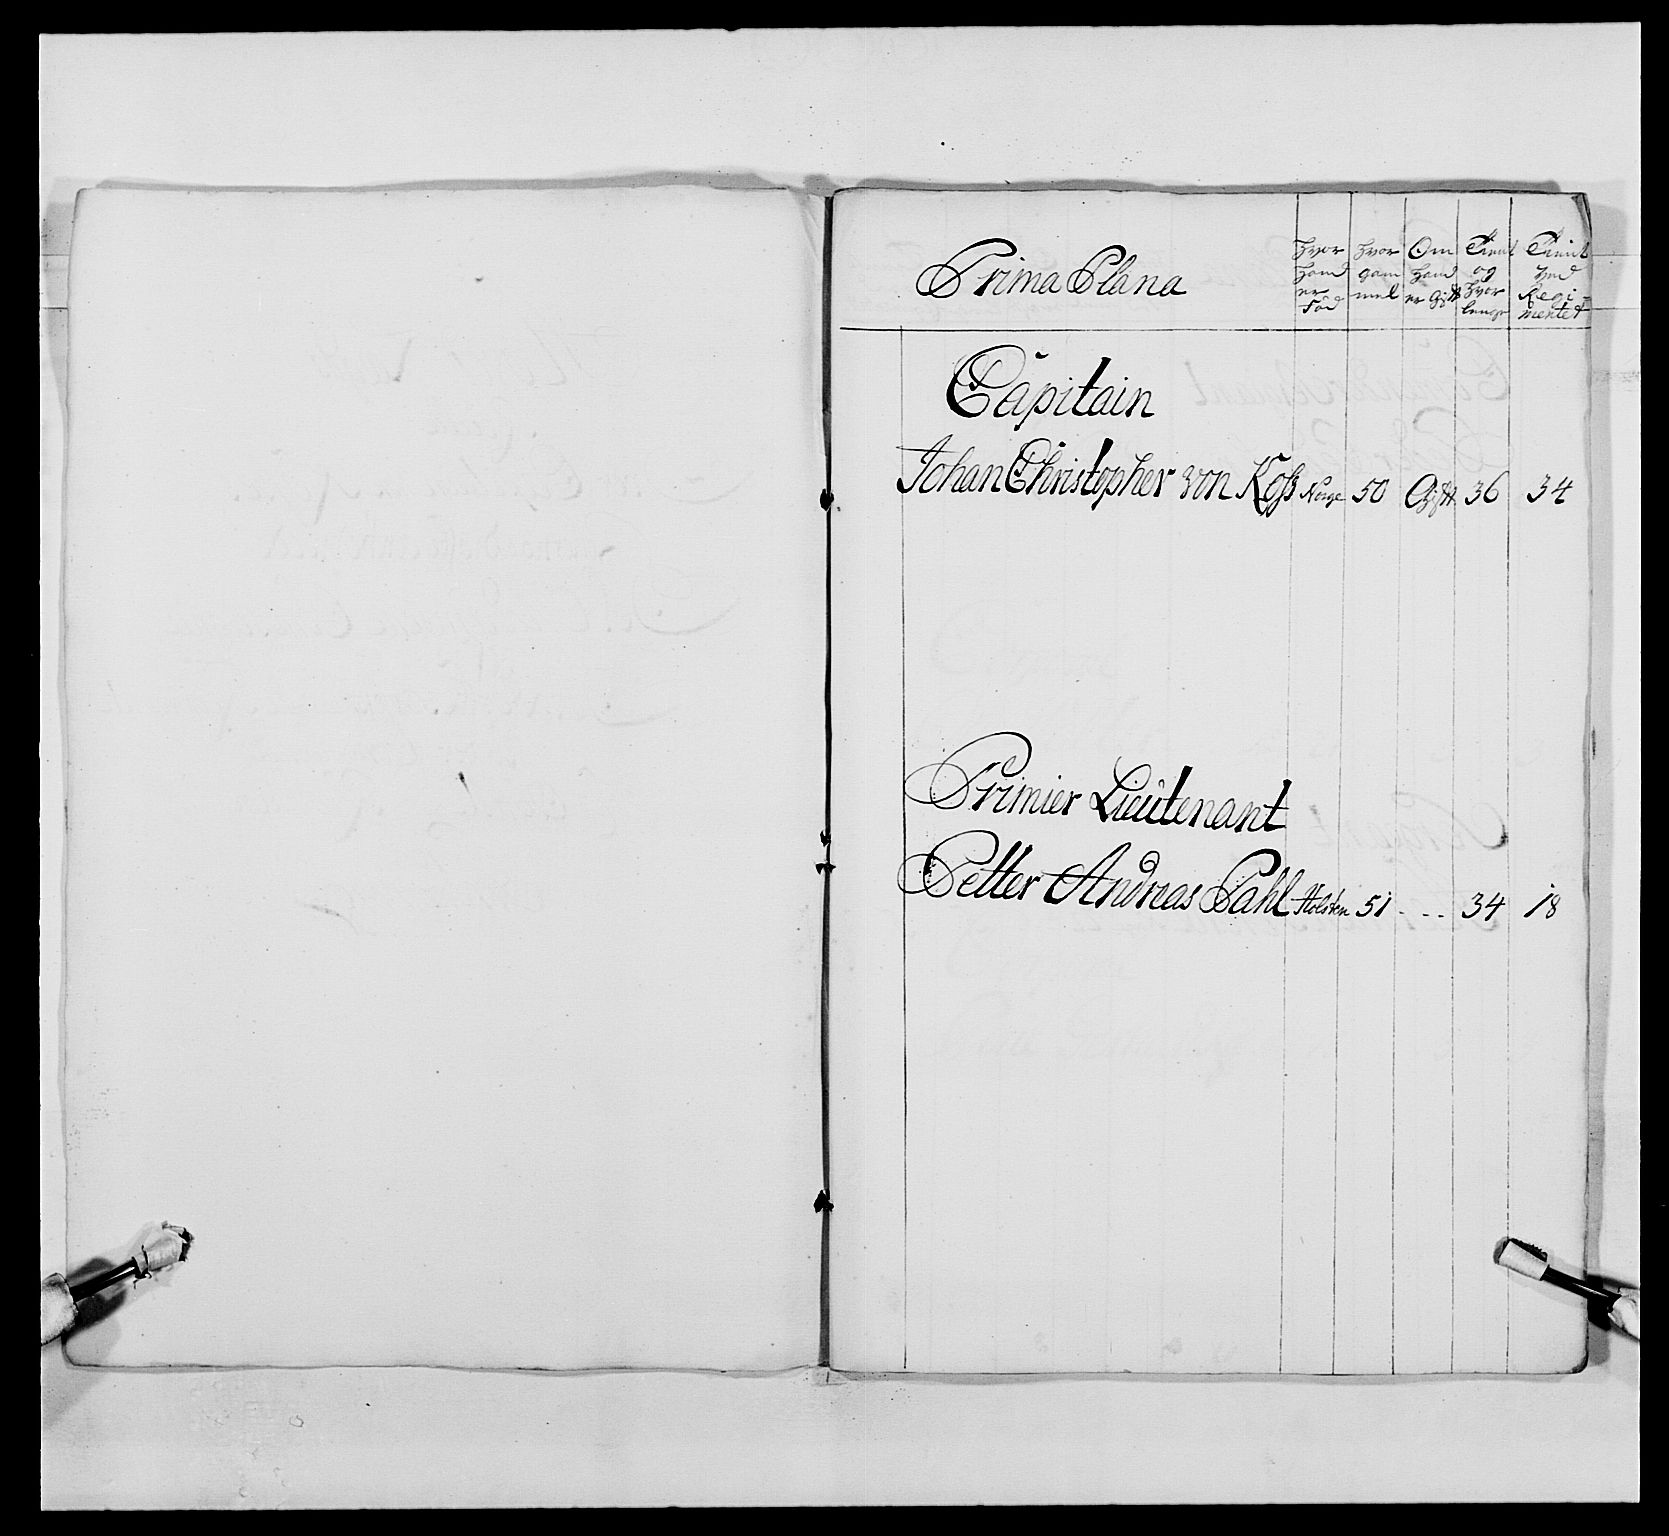 Prima Plana
hvor hand er Fød
hvor gam mel
Om hand er Gift
Tient og hvor lenge
Tient ved Regi- mentet
Capitain
Johan Christopher von Koss Norge 50 Gift 36 34
Primier Lieutenant
Petter Andreas Pahl Holsten 51 - - - 34 18